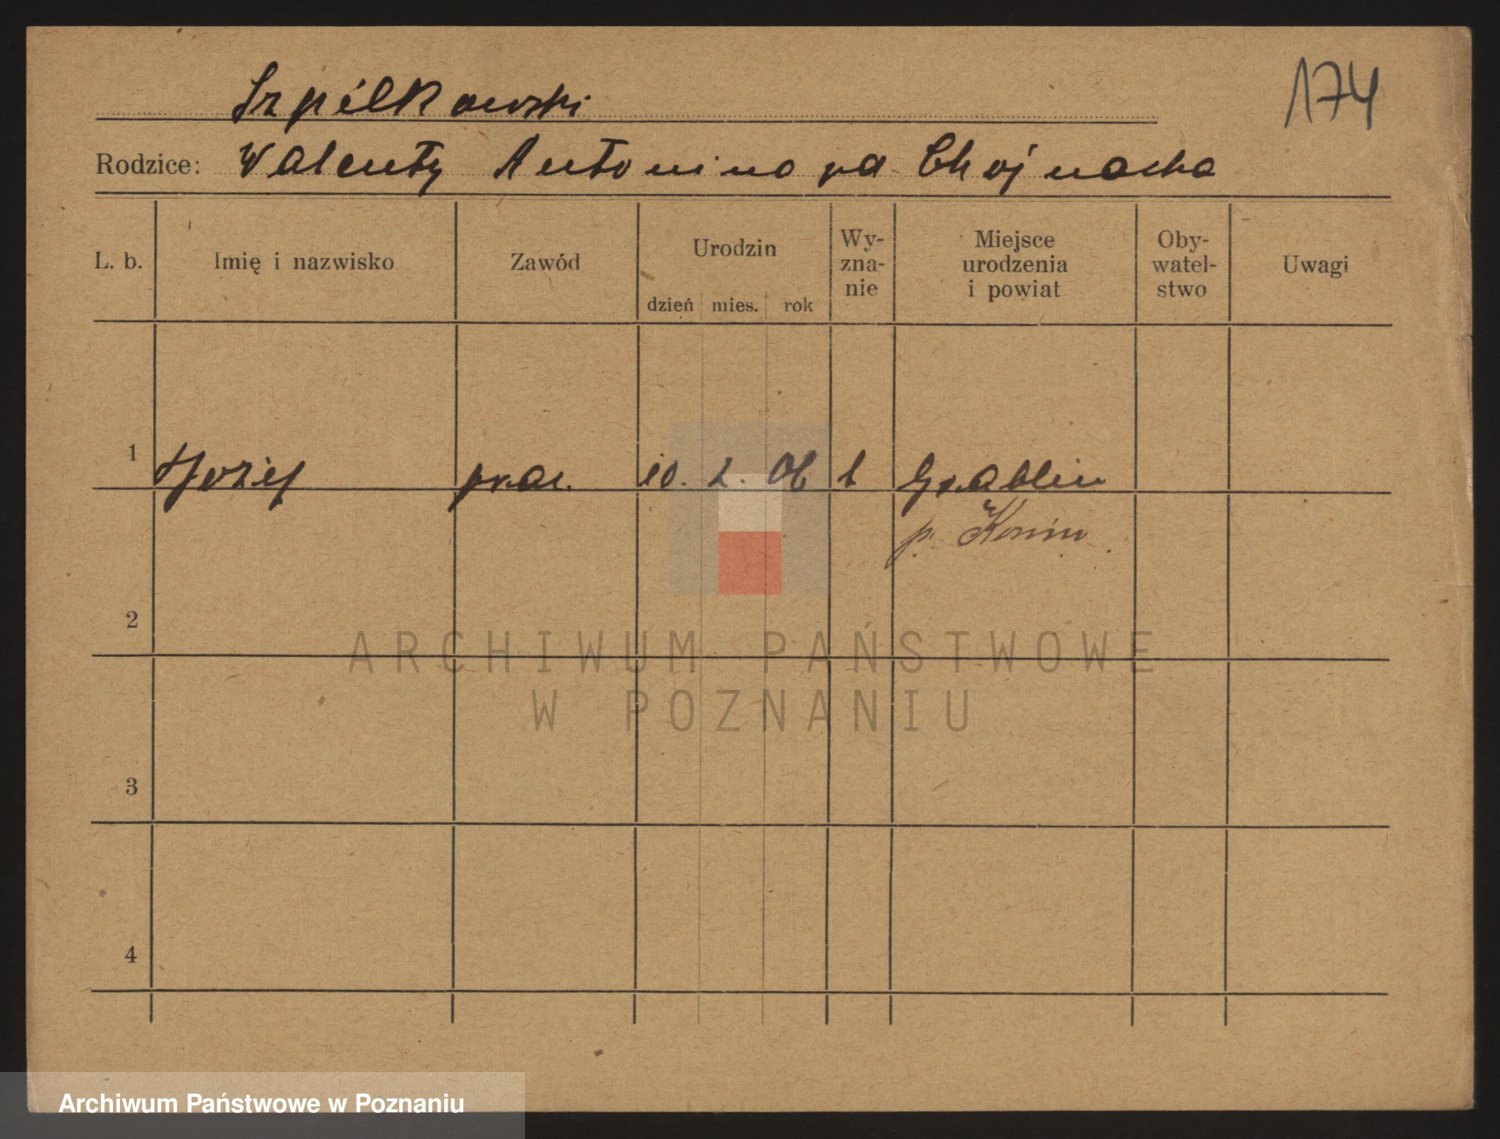 174
Szpilkowski
Rodzice: Walenty Antonina na Chojnacka
L. b. Imię i nazwisko Zawód Urodzin dzień mies. rok Wy-
zna-
nie Miejsce
urodzenia
i powiat Oby-
watel-
stwo Uwagi
1 Józef prac. 10. 2. 06 Grablin
p. Konin
2
ARCHIWUM PAŃSTWOWE
W POZNANIU
3
4
Archiwum Państwowe w Poznaniu